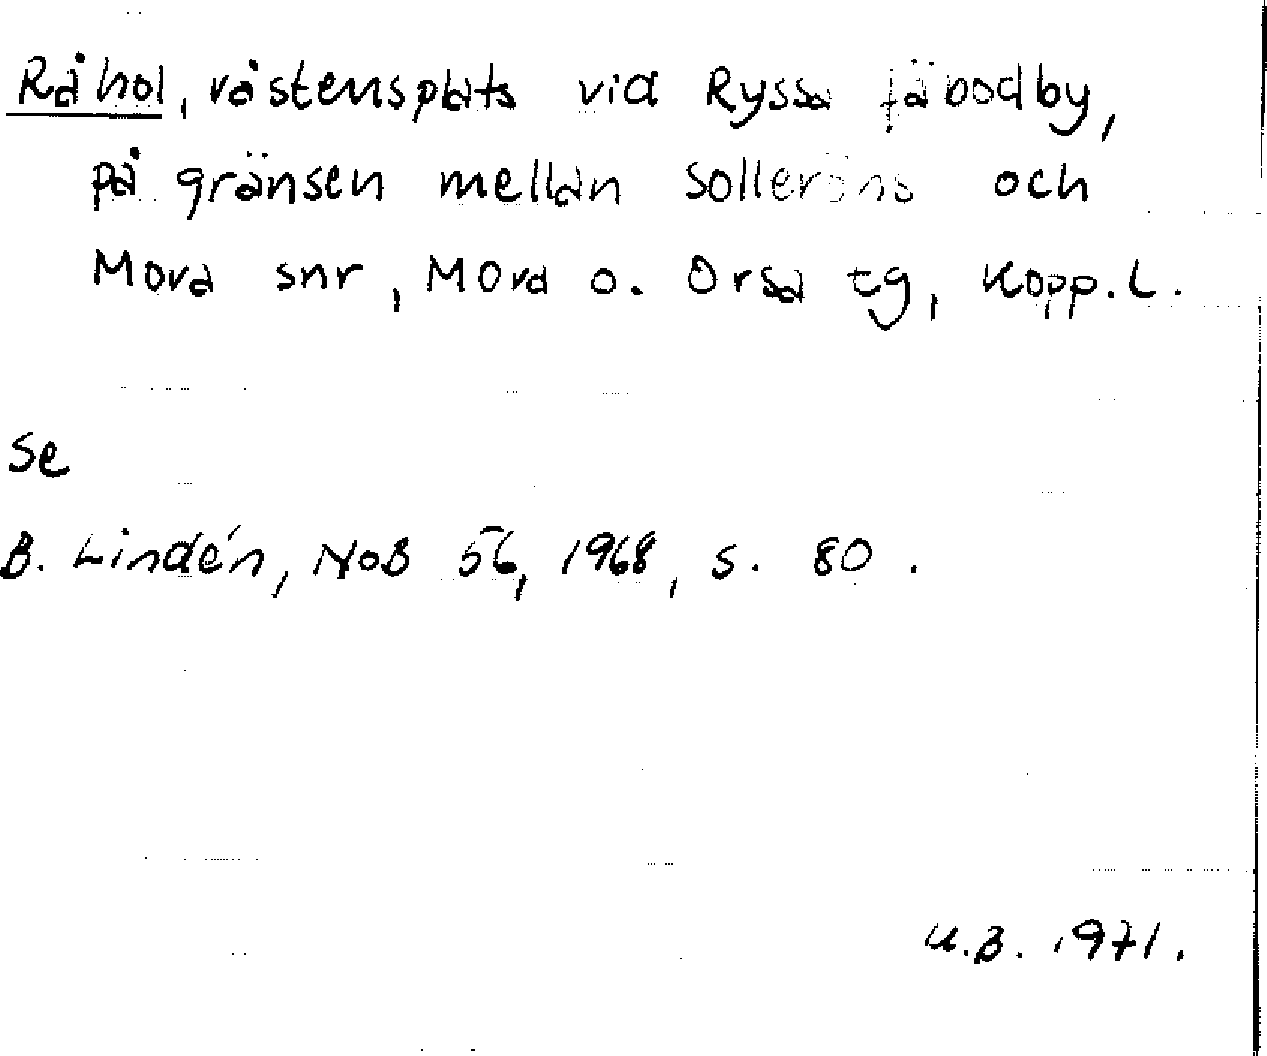 Råhol, råstensplats vid Ryssa fäbodby,
på gränsen mellan Solleröns och
Mora snr, Mora o. Orsa tg, Kopp. l.
Se
B. Lindén, NoB 56, 1968, s. 80.
U.B. 1971.